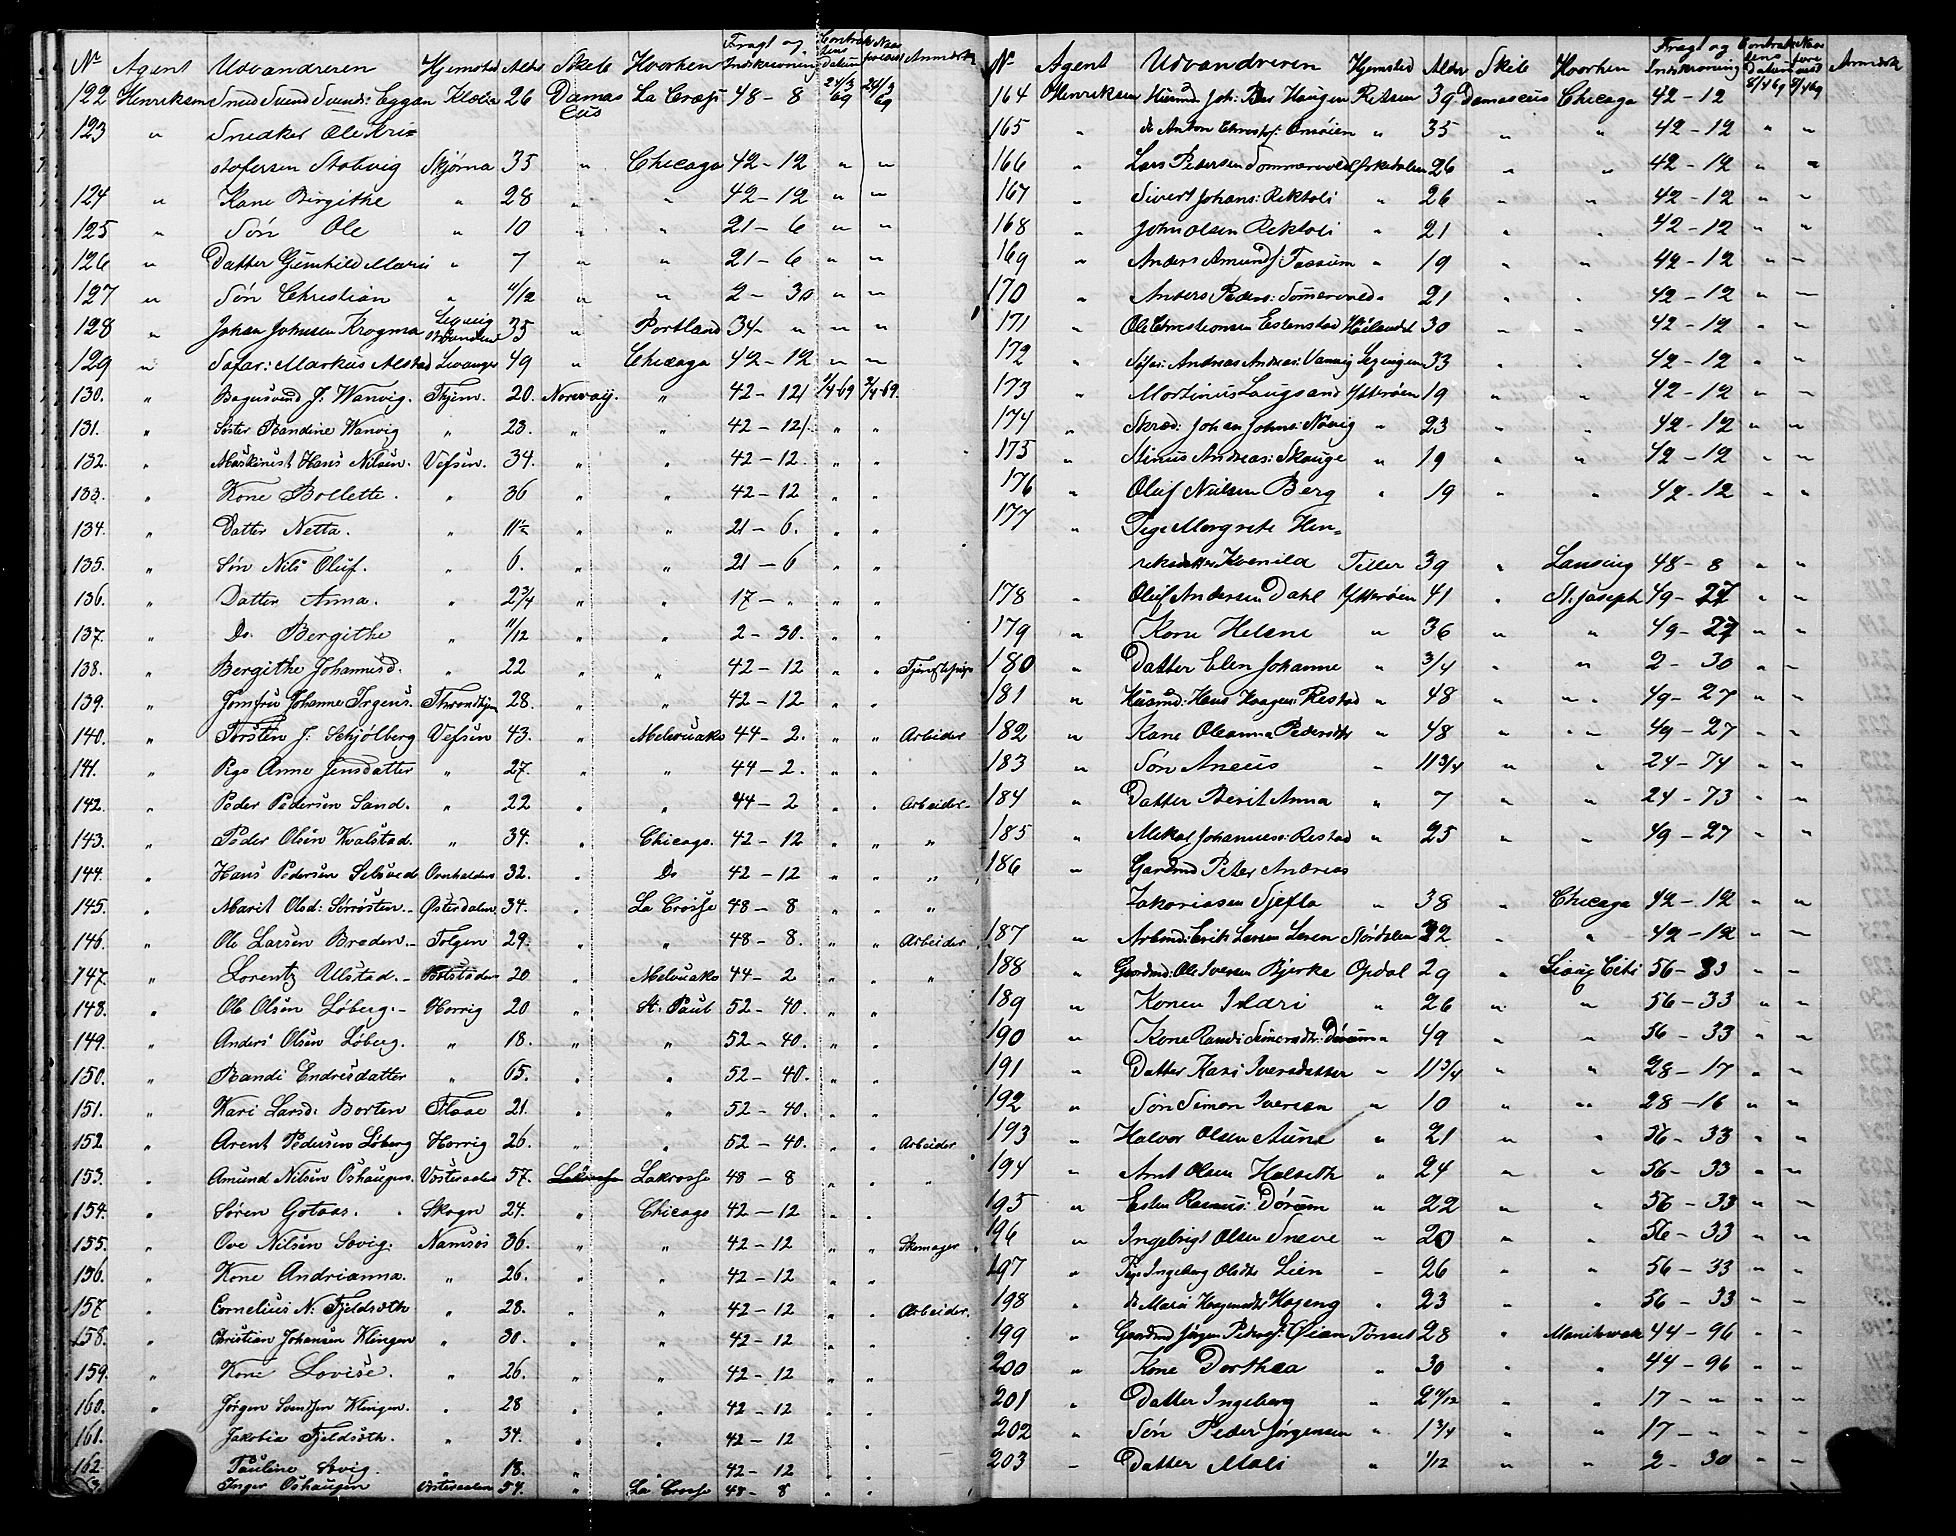 No Agent Udvandreren Hjemsted Alder Skib Hvorhen Fragt og Indskrivning Contraktens Datum Anmærk
122 Henriksen Smed Svend Svends: Eggan Klæbu 26 Damascus La Crosse 48 - 8 24/3 69 24/3 69
123 " Snedker Ole Kri=
stofersen Stobvig Skjørna 35 " Chicago 42 - 12 " "
124 " Kone Birgithe " 28 " " 42 - 12 " "
125 " Søn Ole " 10 " " 21 - 6 " "
126 " Datter Gunhild Marie " 7 " " 21 - 6 " "
127 " Søn Christian " 11/12 " " 2 - 30 " "
128 " Johan Johnsen Krogmo 35 " Portland 34 " " "
129 " Safar: Markus Alstad Levanger 49 " Chicago 42 - 12 " "
130. " J. Wanvig. Thjem. 20. Norway. " 42 - 12 1/4 69 2/4 69.
131. " Søster Randine Wanvig " 23. " " 42 - 12 " "
132. " Maskinist Hans Nilsen. Vefsen. 34. " " 42 - 12. " "
133. " Kone Bollette. " 36 " " 42 - 12 " "
134. " Datter Netta. " 11½ " " 21 - 6. " "
135. " Søn Nils Oluf. " 6. " " 21 - 6 " "
136. " Datter Anna. " 2¾ " " 17 - " " "
137. " Do. Bergithe " 11/12 " " 2 - 30. " "
138. " Bergithe Johannesd. " 22 " " 42 - 12 " " Tjenestepige
139. " Jomfru Johanne Jrgens. Throndhjem 28. " " 42 - 12 " "
140. " Torsten J. Schjølberg Vefsen 43. " Melvuaks 44 - 2. " " Arbeider
141. " Pge Anne Jensdatter " 27. " " 44 - 2. " "
142. " Peder Pedersen Sand. " 22 " " 44 - 2 " " Arbeider
143. " Peder Olsen Kvalstad. " 34. " Chicago. 42 - 12 " " "
144. " Hans Pedersen Selsved Overhalden 32. " Do 42 - 12 " " "
145. " Marit Olsd: Sørrösten. Østerdalen 34. " La Crosse 48 - 8 " " "
146. " Ole Larsen Braden. Tolgen 29. " " 48 - 8. " " Arbeider
147. " Lorentz Ulstad. 20 " Melvuaks 44 - 2 " " "
148. " Ole Olsen Løberg. Horrig 20 " St. Paul 52 - 40. " "
149. " Anders Olsen Løberg. " 18. " " 52 - 40. " "
150. " Randi Endresdatter " 65. " " 52 - 40. " "
151. " Kari Larsd: Borten Flaae 21. " " 52 - 40. " "
152. " Arent Pedersen Løberg Horrig 26. " " 52 - 40. " " Arbeider
153. " Amund Nilsen Oshaugen. Vösteraalen 57. Lakrosse Lakrosse 48 - 8 " " "
154. " Søren Gotaas. Skogn 24. " Chicago 42 - 12 " "
155. " Ove Nilsen Sovig. Namsos 36. " " 42 - 12 " " Skomager
156. " Kone Andrianna. " 26. " " 42 - 12 " "
157. " Cornelius N. Fjeldsöth " 28. " " 42 - 12 " " Arbeider.
158. " Christian Johansen Klingen " 30. " " 42 - 12 " "
159. " Kone Lovise. " 26. " " 42 - 12 " "
160. " Jörgen Svendsen Klingen. " 28 " " 42 - 12 " "
161. Jakobia Fjeldsöth. " 34. " " 42 - 12 " "
162 Pauline Sovig. " 18. " " 42 - 12 " "
Inger Oshaugen Vösteraalen 54. " La Crosse 48 - 8 " "
No Agent Udvandreren Hjemsted Alder Skib Hvorhen Fragt og Indskrivning Contraktens Datum Anmærk
164 Henriksen Husmd Joh: Haugen Reitsen 39 Damascus Chicago 42 - 12 8/4 69 8/4 69
165 " do Anton Christof: Omöien " 35 " " 42 - 12 " "
166 " Lars Petersen Sommervold Orkedalen 26 " " 42 - 12 " "
167 " Sivert Johans: Rektoli " 26 " " 42 - 12 " "
168 " John Olsen Rektoli " 21 " " 42 - 12 " "
169 " Anders Amunds: Fossum " 19 " " 42 - 12 " "
170 " Anders Peders: Somervold " 21 " " 42 - 12 " "
171 " Ole Christiansen Estenstad Hölandet 30 " " 42 - 12 " "
172 " Andreas Andreas: Vannvig 33 " " 42 - 12 " "
173 " Martinus Laugsand Ytterøen 19 " " 42 - 12 " "
174 " Skræd. Johan Johns: Növig " 23 " " 42 - 12 " "
175 " Minus Andreas: Skauge " 19 " " 42 - 12 " "
176 Oluf Nielsen Berg " 19 " 42 - 12 " "
177 " Pige Margrete Hen=
riksdatter Kvenild Tiller 39 " Lansing 48 - 8 " "
178 " Oluf Andersen Dahl Ytterøen 41 " St. Joseph 49 - 27 " "
179 " Kone Helene " 36 " " 49 - 27 " "
180 " Datter Elen Johanne " 3/4 " " 2 - 30 " "
181 " Husmd: Hans Haagens: Restad " 48 " " 49 - 27 " "
182 " Kone Oleanna Pedersdtr " 48 " " 49 - 27 " "
183 " Søn Aneus " 11 3/4 " " 24 - 74 " "
184 " Datter Berit Anna " 7 " " 24 - 73 " "
185 " Mikal Johannes: Restad " 25 " " 49 - 27 " "
186 " Gaardmd Peter Andreas
Zakariasen Sjefla " 38 " Chicago 42 - 12 " "
187 " Arbmd: Erik Larsen Leren Stördalen 22 " " 42 - 12 " "
188 " Gaardmd: Ole Iversen Bjerke Opdal 29 " Sioux Citi 56 - 33 " "
189 " Konen Ildri " 26 " " 56 - 33 " "
190 " Kone Randi Simensdtr: Dörum " 49 " " 56 - 33 " "
191 " Datter Kari Iversdatter " 11 3/4 " " 28 - 17 " "
192 " Søn Simon Iversen " 10 " " 28 - 16 " "
193 " Halvor Olsen Aune " 21 " " 56 - 33 " "
194 " Arnt Olsen Halseth " 24 " " 56 - 33 " "
195 " Esten Rasmus: Dörum " 22 " " 56 - 33 " "
196 " Ingebrigt Olsen Sneve " 20 " " 56 - 33 " "
197 " Pige Ingeborg Olsdtr Lien " 26 " " 56 - 33 " "
198 " do Mari Haagensdtr Hogeng " 23 " " 56 - 33 " "
199 " Gaardmd Jörgen Peders: Öian Tönset 28 " Manitowak 44 - 96 " "
200 " Kone Dorthea " 30 " " 44 - 96 " "
201 " Datter Ingeborg " 2 11/12 " " 17 - " " "
202 " Søn Peder Jörgensen " 1 3/4 " " 17 - " " "
203 " Datter Mali " 1/12 " " 2 - 30 " "